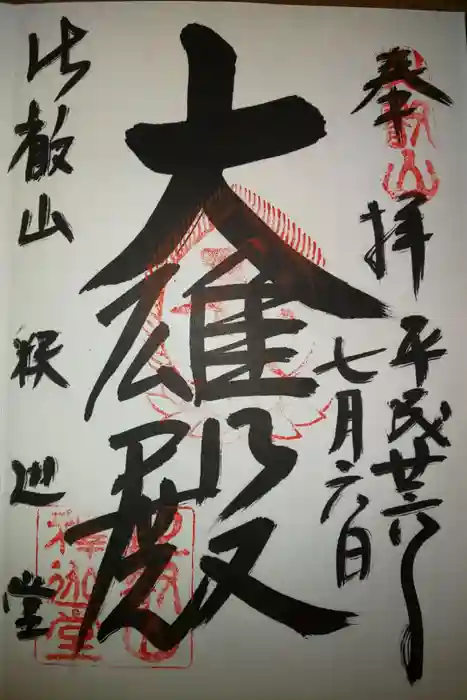 奉拝
平成廿六年
七月六日
大雄殿
比叡山 釈迦堂
叡山
釋迦堂